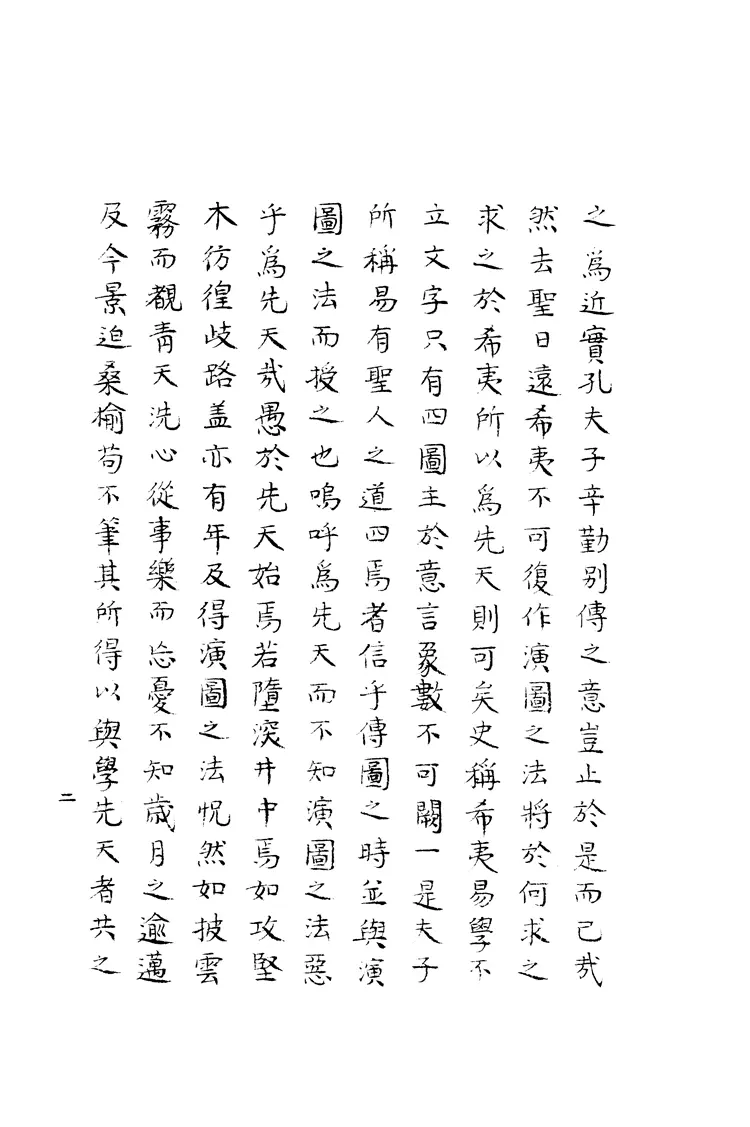 之爲近實孔夫子辛勤別傳之意豈止於是而已哉
然去聖日遠希夷不可復作演圖之法將於何求之
求之於希夷所以爲先天則可矣史稱希夷易學不
立文字只有四圖主於意言象數不可闕一是夫子
所稱易有聖人之道四焉者信乎傳圖之時並與演
圖之法而授之也嗚呼爲先天而不知演圖之法惡
乎爲先天哉愚於先天始焉若墮深井中焉如攻堅
木彷徨歧路盖亦有年及得演圖之法怳然如披雲
霧而覩青天洗心從事樂而忘憂不知歲月之逾邁
及今景迫桑榆苟不筆其所得以與學先天者共之
二